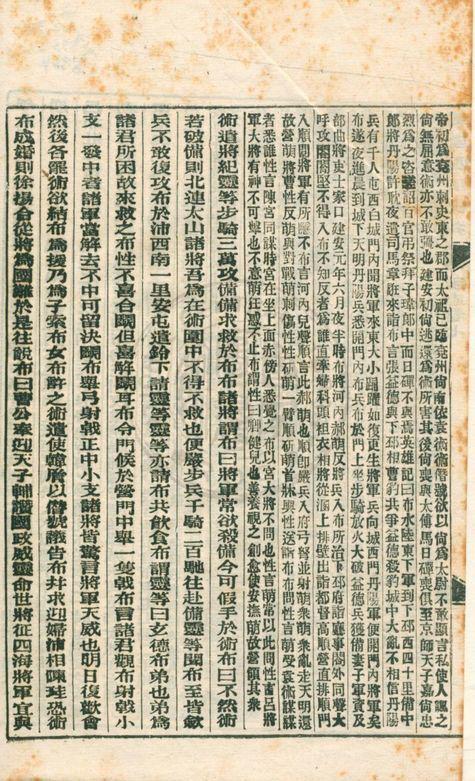 帝初為兖州刺史東之郡而太祖已臨兖州尚南依袁術術僭號欲以尚為太尉不敢顯言私使人諷之
尚無屈意術亦不敢彊也建安初尚逃還為術所害其後尚喪與太傅馬日磾喪俱至京師天子嘉尚忠
烈為之咨嗟詔百官弔祭拜子瑋郎中而日磾不與焉英雄記曰布水陸東下軍到下邳西四十里備中
郎將丹陽許耽夜遣司馬章誑來詣布言張益德與下邳相曹豹共爭益德殺豹城中大亂不相信丹陽
兵有千人屯西白城門內聞將軍來東大小踊躍如復更生將軍兵向城西門丹陽軍便開門內將軍矣
布遂夜進晨到城下天明丹陽兵悉開門內布兵布於門上坐步騎放火大破益德兵獲備妻子軍資及
部曲將吏士家口建安元年六月夜半時布將河內郝萌反將兵入布所治下邳府詣廳事閤外同聲大
呼攻閤閤堅不得入布不知反者為誰直牽婦科頭袒衣相將從溷上排壁出詣都督高順營直排順門
入順問將軍有所隱不布言河內兒聲順言此郝萌也順即嚴兵入府弓弩並射萌眾萌眾亂走天明還
故營萌將曹性反萌與對戰萌刺傷性性斫萌一臂順斫萌首牀輿性送詣布布問性言萌受袁術謀謀
者悉誰性言陳宮同謀時宮在坐上面赤傍人悉覺之布以宮大將不問也性言萌常以此問性言呂將
軍大將有神不可擊也不意萌狂惑不止布謂性曰卿健兒也善養視之創愈使安撫萌故營領其眾
術遣將紀靈等步騎三萬攻備備求救於布布諸將謂布曰將軍常欲殺備今可假手於術布曰不然術
若破備則北連太山諸將吾為在術圍中不得不救也便嚴步兵千騎二百馳往赴備靈等聞布至皆斂
兵不敢復攻布於沛西南一里安屯遣鈴下請靈等靈等亦請布共飲食布謂靈等曰玄德布弟也弟為
諸君所困故來救之布性不喜合鬭但喜解鬭耳布令門候於營門中舉一隻戟布言諸君觀布射戟小
支一發中者諸軍當解去不中可留決鬭布舉弓射戟正中小支諸將皆驚言將軍天威也明日復歡會
然後各罷術欲結布為援乃為子索布女布許之術遣使韓胤以僭號議告布并求迎婦沛相陳珪恐術
布成婚則徐揚合從將為國難於是往說布曰曹公奉迎天子輔讚國政威靈命世將征四海將軍宜與